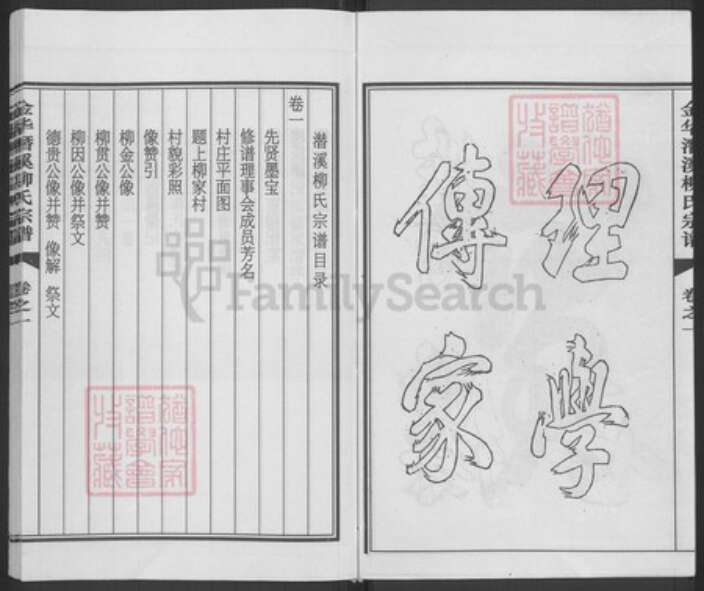 金华潜溪柳氏宗谱
卷之一
理學
傳家
潜溪柳氏宗谱目录
卷一
先贤墨宝
修谱理事会成员芳名
村庄平面图
题上柳家村
村貌彩照
像赞引
柳金公像
柳贯公像并赞
柳因公像并祭文
德贵公像并赞 像解 祭文
金华潜溪柳氏宗谱
卷之一
FamilySearch